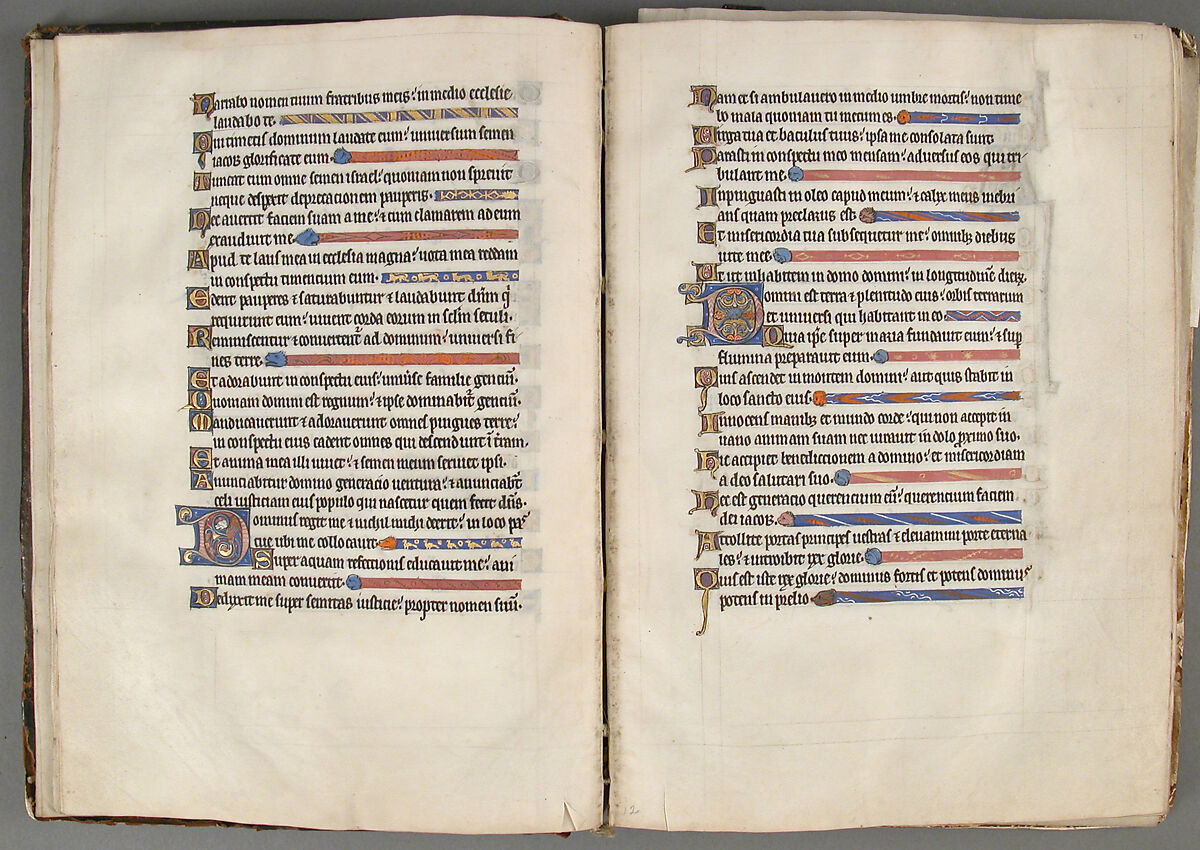 Narrabo nomen tuum fratribus meis: in medio ecclesie
laudabo te.
Qui timetis dominum laudate eum: universum semen
iacob glorificate eum.
Timeat eum omne semen israel: quoniam non sprevit
neque despexit deprecationem pauperis.
Nec avertit faciem suam a me: & cum clamarem ad eum
exaudivit me.
Apud te laus mea in ecclesia magna: vota mea reddam
in conspectu timencium eum.
Edent pauperes & saturabuntur & laudabunt dñm q̇
requirunt eum: vivent corda eorum in sclm seculi.
Reminiscentur & convertent̃ ad dominum: universi fi
nes terre.
Et adorabunt in conspectu eius: uniṽse familie genciũ.
Quoniam domini est regnum: & ipse dominabit̃ genciũ.
Manducaverunt & adoraverunt omnes pingues terre:
in conspectu eius cadent omnes qui descendunt ĩ tr̃am.
Et anima mea illi vivet: & semen meum serviet ipsi.
Anunciabitur domino generacio ventura: & anunciabũt
celi iusticiam eius populo qui nascetur quem fecit dñs.
Dominus regit me & nichil michi deerit: in loco pas
cue ibi me collocavit.
Super aquam refectionis educavit me: ani
mam meam convertit.
Deduxit me super semitas iusticie: propter nomen suũ.
Nam et si ambulavero in medio umbre mortis: non time
bo mala quoniam tu mecum es.
Virga tua et baculus tuus: ipsa me consolata sunt.
Parasti in conspectu meo mensam: adversus eos qui tri
bulant me.
Inpinguasti in oleo capud meum: & calix meus inebri
ans quam preclarus est.
Et misericordia tua subsequetur me: omnibȝ diebus
vite mee.
Et ut inhabitem in domo domini: in longitudinẽ dierȝ.
Domini est terra & plenitudo eius: orbis terrarum
et universi qui habitant in eo.
Quia ip̃e super maria fundavit eum: & sup̃
flumina preparavit eum.
Quis ascendet in montem domini: aut quis stabit in
loco sancto eius.
Innocens manibȝ et mundo corde: qui non accepit in
vano animam suam nec iuravit in dolo p̃ximo suo.
Hic accipiet benedictionem a domino: et misericordiam
a deo salutari suo.
Hec est generacio querencium eũ: querencium faciem
dei iacob.
Attollite portas principes vestras & elevamini porte eterna
les: & introibit rex glorie.
Quis est iste rex glorie: dominus fortis et potens dominus
potens in prelio.
12